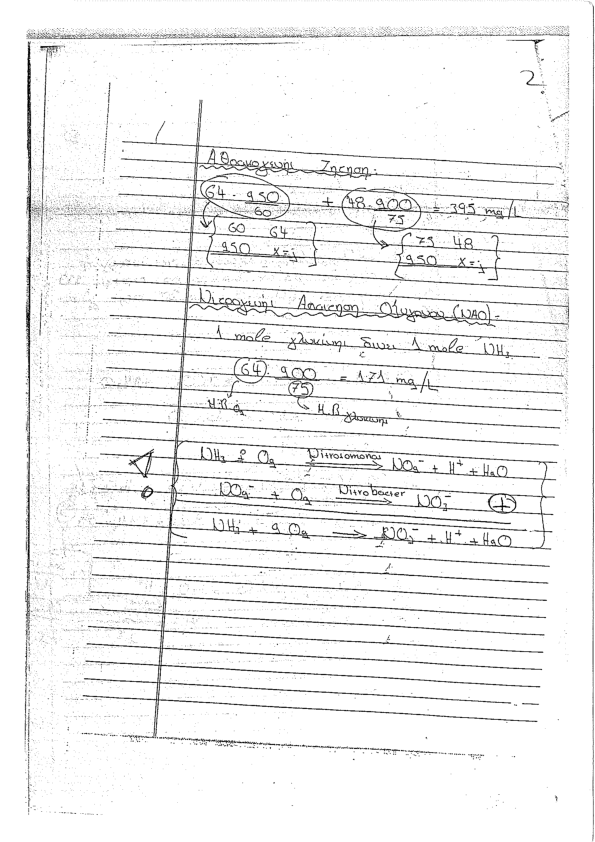 2.
Αθροιστική Ζήτηση:
64 · 250/60 + 48 · 200/75 = 395 mg/L
60 64
250 x=;
75 48
250 x=;
Νιτρογική Απαίτηση Οξυγόνου (NAO)-
1 mole γλυκίνη δίνει 1 mole NH3
64 · 200/75 = 171 mg/L
Μ.Β O2 Μ.Β γλυκίνη
NH3 + O2 Nitrosomonas → NO2- + H+ + H2O
NO2- + O2 Nitrobacter → NO3- (+)
NH3 + 2 O2 → NO3- + H+ + H2O